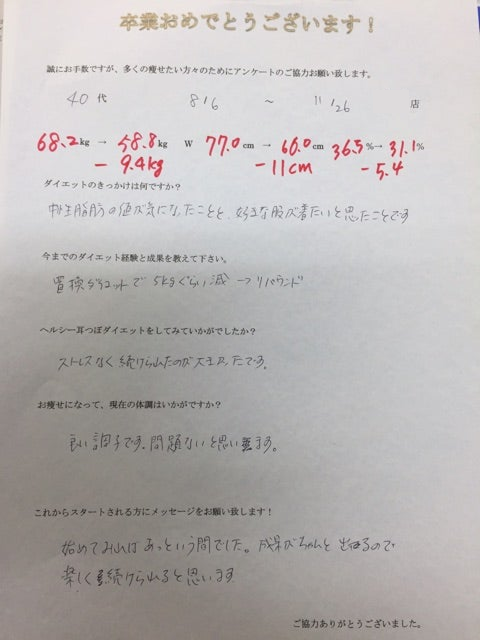 卒業おめでとうございます!
誠にお手数ですが、多くの痩せたい方々のためにアンケートのご協力お願い致します。
40代 8/6 ~ 11/26 店
68.2kg → 58.8kg W 77.0cm → 66.0cm 36.5%→ 31.1%
-9.4kg -11cm -5.4
ダイエットのきっかけは何ですか?
中性脂肪の値が気になったことと、好きな服が着たいと思ったことです
今までのダイエット経験と成果を教えて下さい。
置換ダイエットで5kgぐらい減→リバウンド
ヘルシー耳つぼダイエットをしてみていかがでしたか?
ストレスなく続けられたのが大きかったです。
お痩せになって、現在の体調はいかがですか?
良い調子です。問題ないと思います。
これからスタートされる方にメッセージをお願い致します!
始めてみればあっという間でした。成果がちゃんと出るので
楽しく続けられると思います
ご協力ありがとうございました。